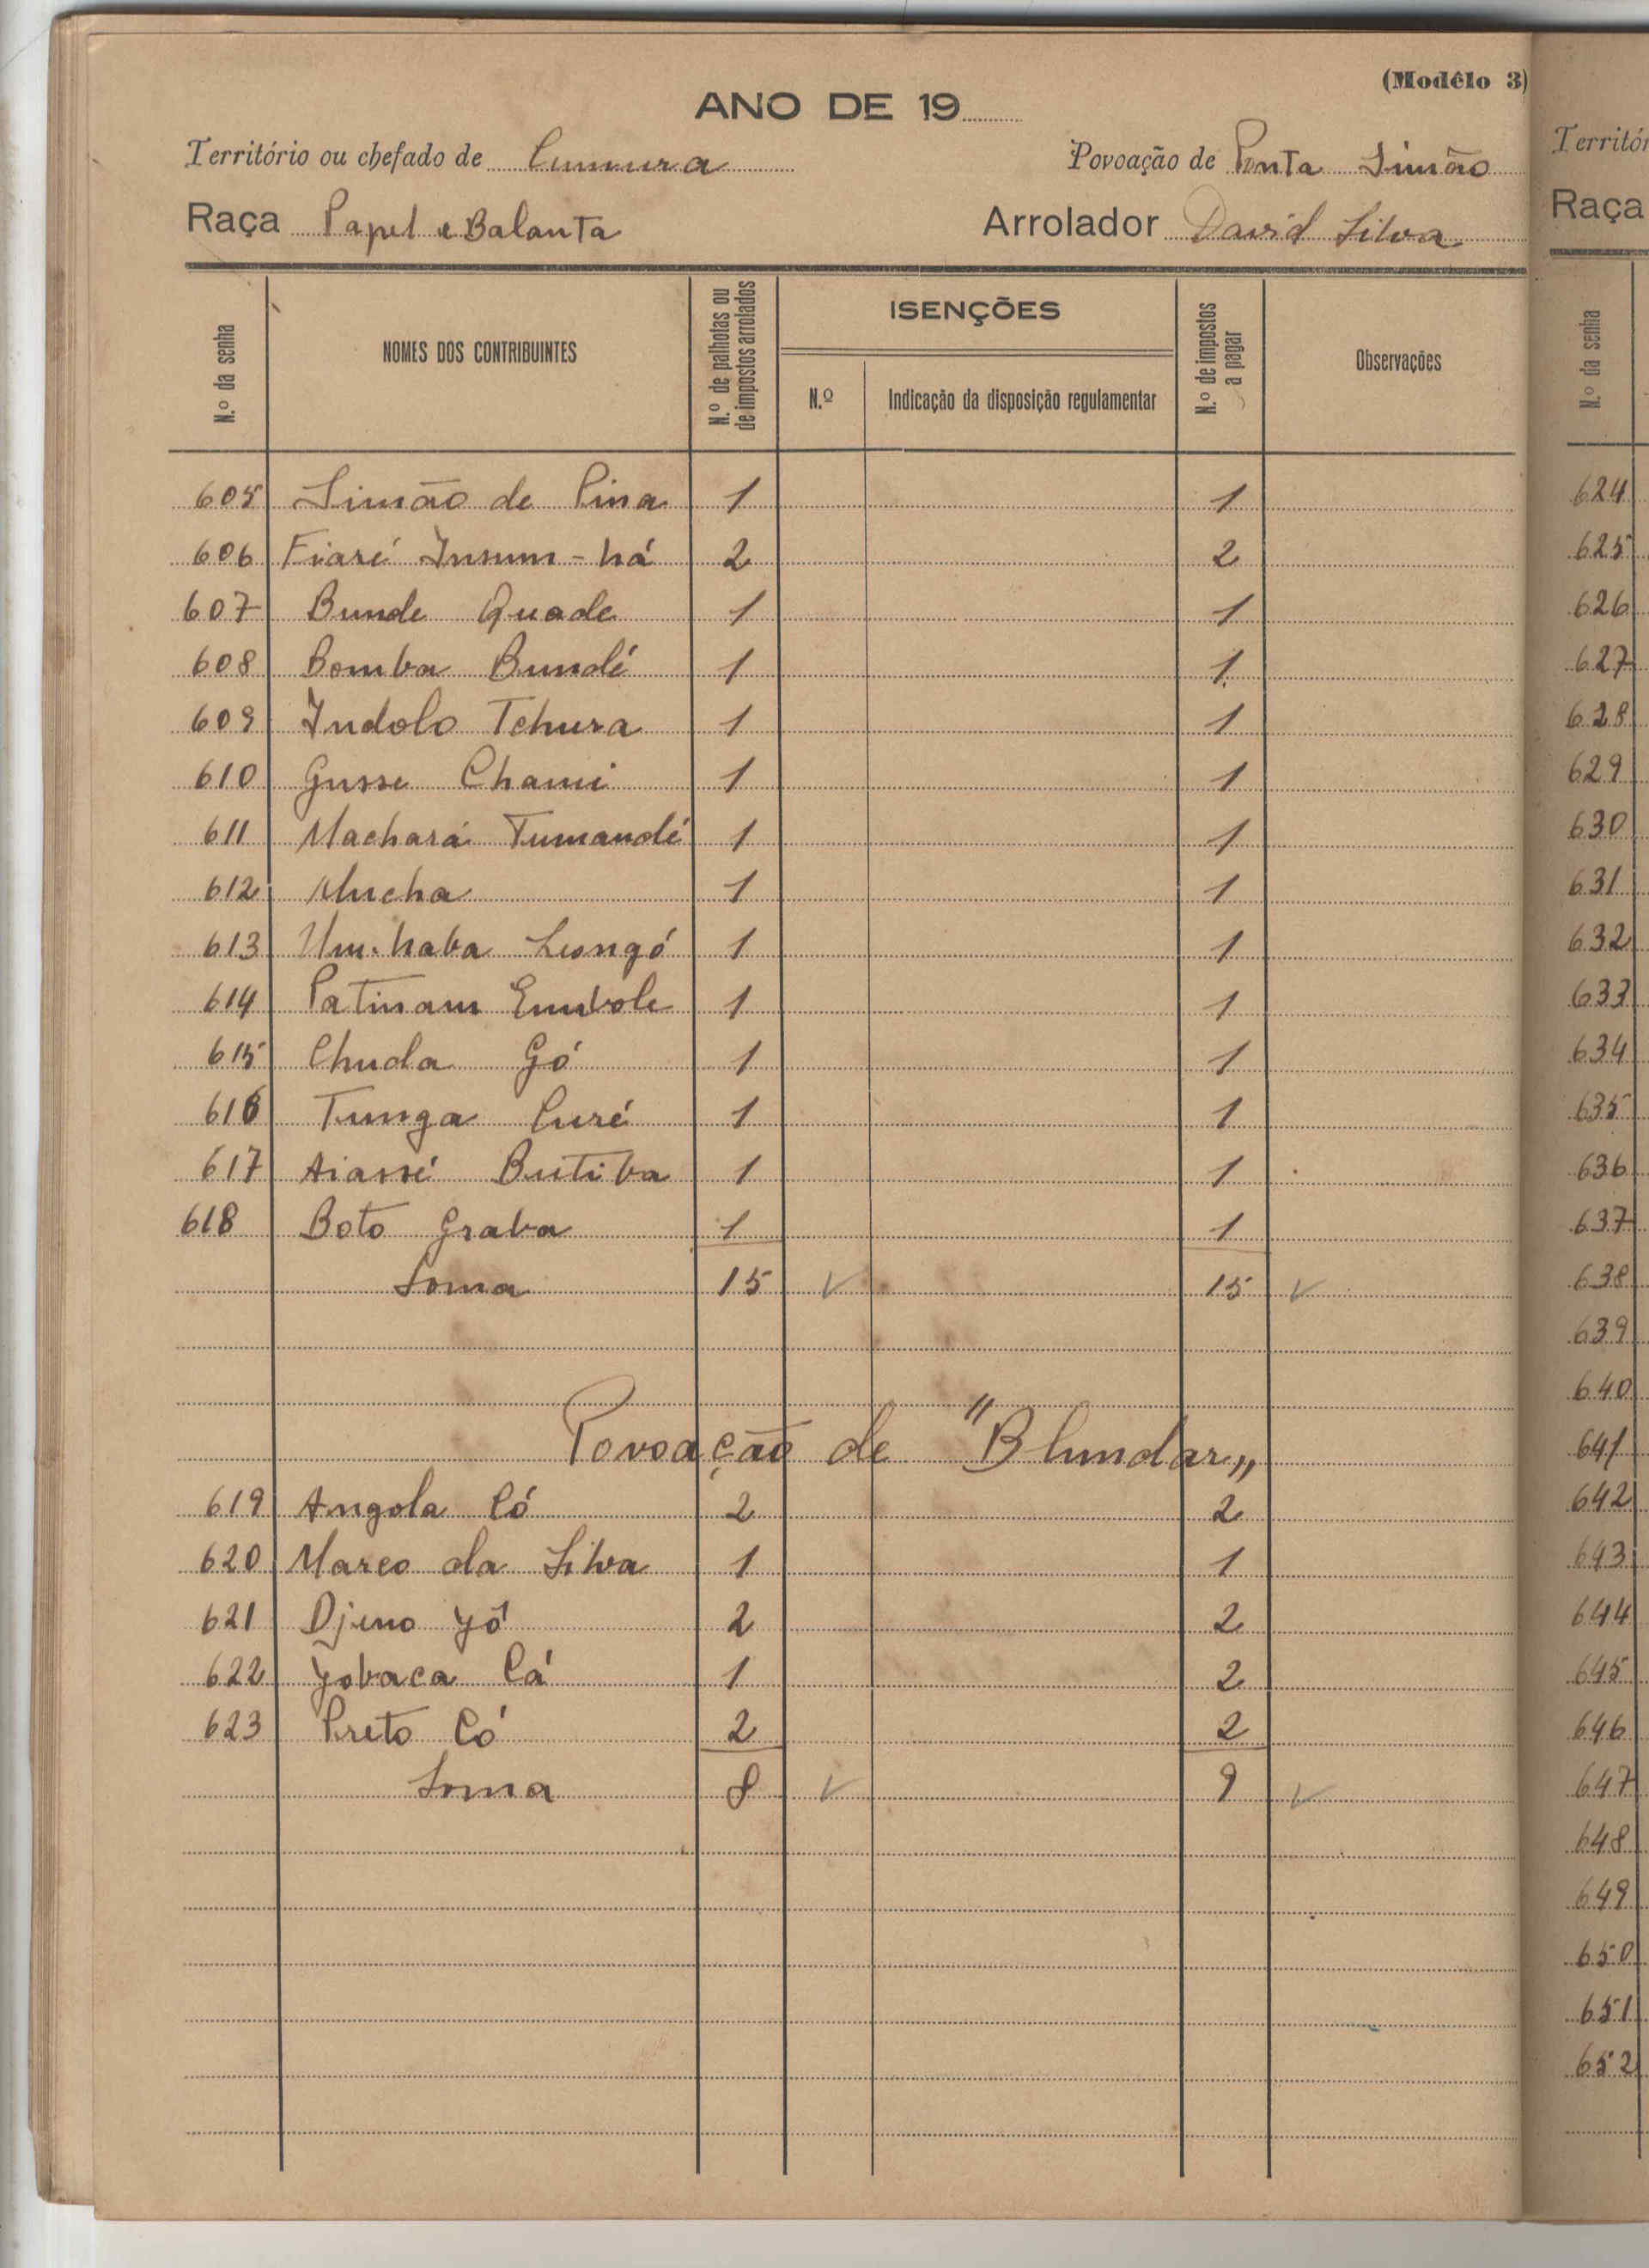 (Modêlo 3)
ANO DE 19
Território ou chefado de Cumura Povoação de Ponta Simão
Raça Papel e Balanta Arrolador David Silva
N.º da senha NOMES DOS CONTRIBUINTES N.º de palhotas ou de impostos arrolados ISENÇÕES N.º Indicação da disposição regulamentar N.º de impostos a pagar Observações
605 Simão de Pina 1 1
606 Fiaré Insum-há 2 2
607 Bunde Quade 1 1
608 Bomba Bundé 1 1
609 Indolo Tchura 1 1
610 Gusse Chami 1 1
611 Machará Tumandé 1 1
612 Mucha 1 1
613 Um-haba Longó 1 1
614 Patinam Embole 1 1
615 Chuda Gó 1 1
616 Tunga Curé 1 1
617 Aiassé Butiba 1 1
618 Boto Graba 1 1
Soma 15 ✓ 15 ✓
Povoação de "Blundar"
619 Angola Có 2 2
620 Marco da Silva 1 1
621 Djuno Yó 2 2
622 Yobaca Cá 1 2
623 Preto Có 2 2
Soma 8 ✓ 9 ✓
Territór
Raça
N.º da senha
624
625
626
627
628
629
630
631
632
633
634
635
636
637
638
639
640
641
642
643
644
645
646
647
648
649
650
651
652